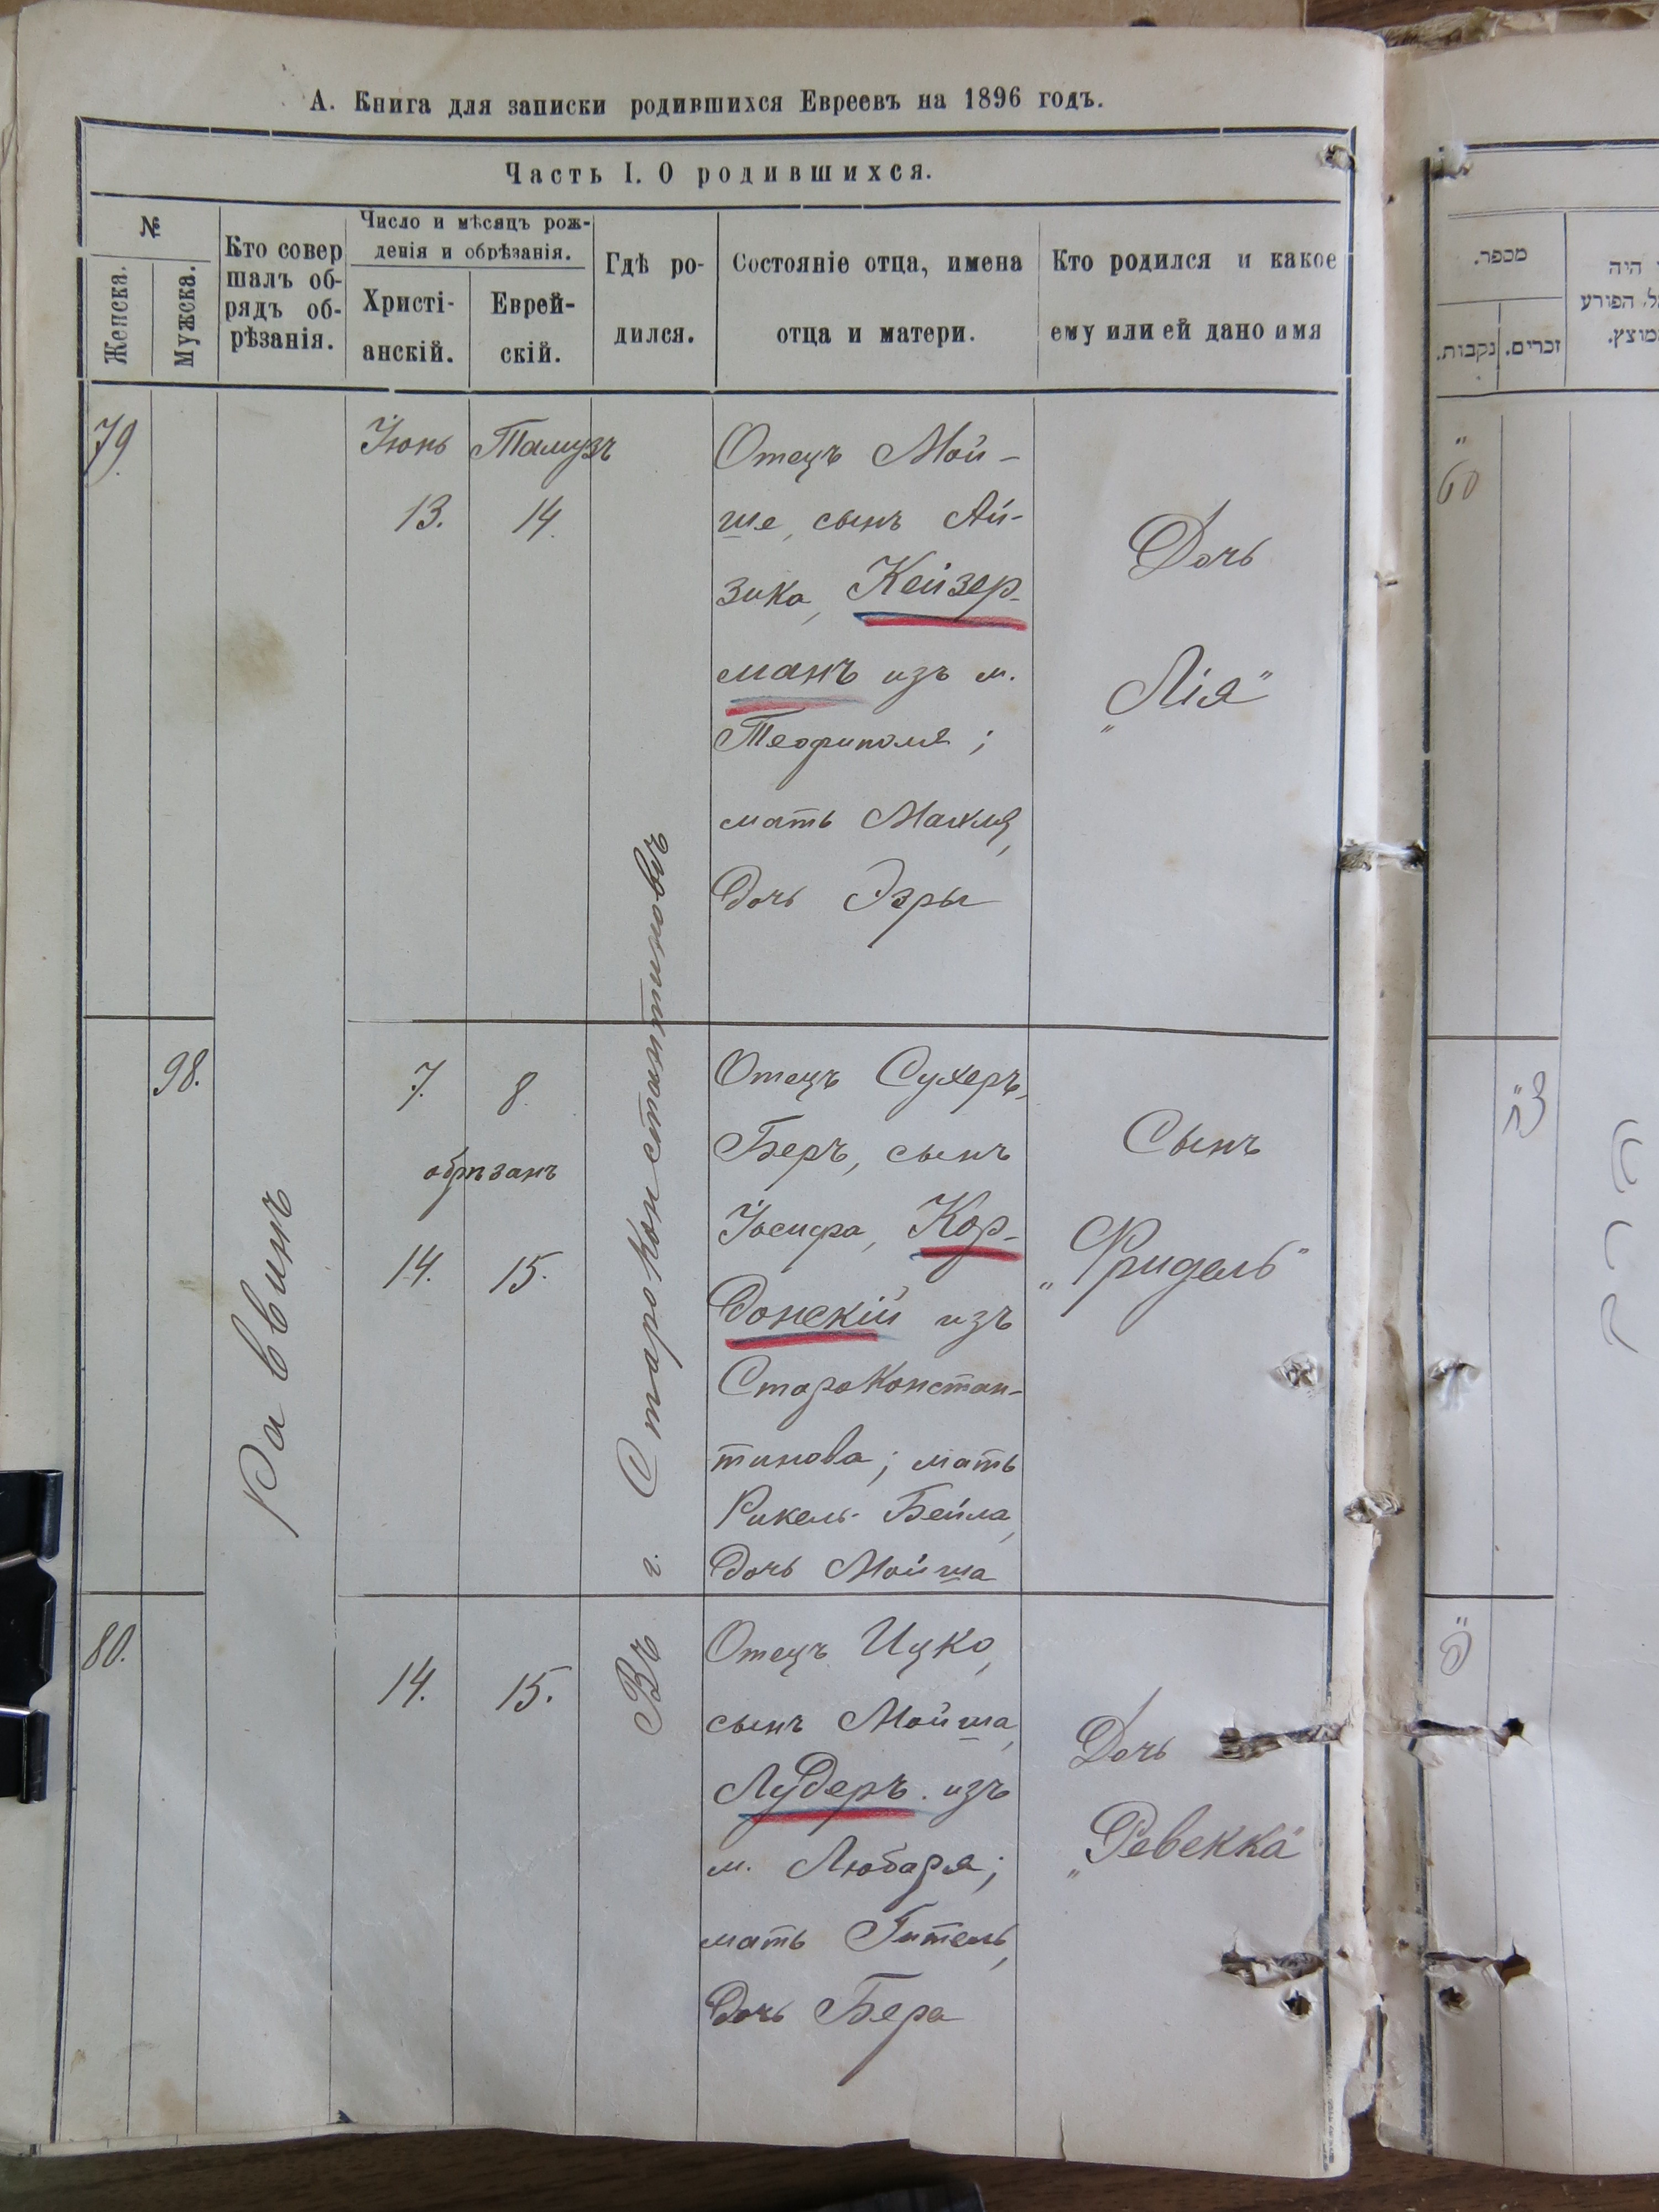 А. Книга для записки родившихся Евреевъ на 1896 годъ.
Часть I. О родившихся.
№
Женска.
Мужска.
Кто совер
шалъ об-
рядъ об-
рѣзанія.
Число и мѣсяцъ рож-
денія и обрѣзанія.
Христі-
анскій.
Еврей-
скій.
Гдѣ ро-
дился.
Состояніе отца, имена
отца и матери.
Кто родился и какое
ему или ей дано имя
79.
Іюнь
13.
Тамузъ
14.
Отецъ Мой-
ше, сынъ Ай-
зика, Кейзер-
манъ изъ м.
Теофиполя;
мать
дочь Эзры
Дочь
„Лія"
Раввинъ
Въ г. Староконстантиновъ
98.
7.
8.
обрѣзанъ
14.
15.
Отецъ Сухеръ,
Беръ, сынъ
Іосифа, Кор-
донскій изъ
Староконстан-
тинова; мать
Рикель-Бейла,
дочь Мойша
Сынъ
„Фридель"
80.
14.
15.
Отецъ Ицко,
сынъ Мойша,
Лудеръ. изъ
м. Любаря;
мать Гитель,
дочь Бера
Дочь
„Ревекка"
מספר.
נקבות.
זכרים.
היה
הפורע